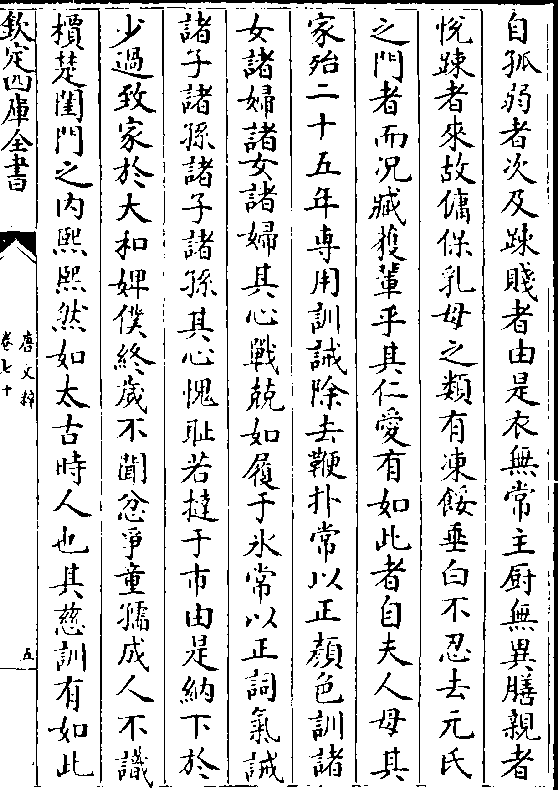 自孤弱者次及踈賤者由是衣無常主厨無異膳親者
悅踈者來故傭保乳母之類有凍餒垂白不忍去元氏
之門者而况臧獲輩乎其仁愛有如此者自夫人母其
家殆二十五年専用訓誡除去鞭扑常以正顔色訓諸
女諸婦諸女諸婦其心戰兢如履于氷常以正詞氣誡
諸子諸孫諸子諸孫其心愧耻若撻于市由是納下於
少過致家於大和婢僕終歳不聞忿爭童孺成人不識
檟楚閨門之内熈熈然如太古時人也其慈訓有如此
欽定四庫全書
唐文粹
卷七十
五